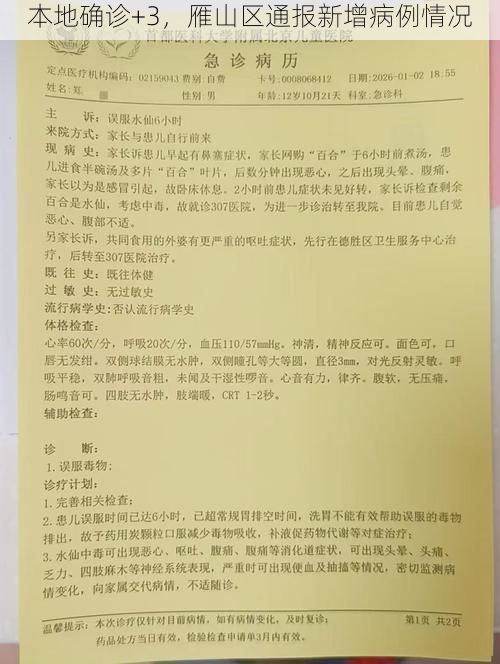 本地确诊+3，雁山区通报新增病例情况
首都医科大学附属北京儿童医院
急诊病历
定点医疗机构编码：02159043 费别：自费 卡号：0008068412 日期：2026-01-02 18:55
姓名：郑 性别：男 年龄：12岁10月21天 科室：急诊科
主 诉：误服水仙6小时
来院方式：家长与患儿自行前来
现 病 史：家长诉患儿早起有鼻塞症状，家长网购“百合”于6小时前煮汤，患
儿进食半碗汤及多片“百合”叶片，后数分钟出现恶心，之后出现头晕、腹痛，
家长以为是感冒引起，故卧床休息。2小时前患儿症状未见好转，家长诉检查剩余
百合是水仙，考虑中毒，故就诊307医院，为进一步诊治转至我院。目前患儿自觉
恶心、腹部不适。
另家长诉，共同食用的外婆有更严重的呕吐症状，先行在德胜区卫生服务中心治
疗，后转至307医院治疗。
既 往 史：既往体健
过 敏 史：无过敏史
流行病学史：否认流行病学史
体格检查：
心率60次/分，呼吸20次/分，血压110/57mmHg。神清，精神反应可。面色可。口
唇无发绀。双侧球结膜无水肿，双侧瞳孔等大等圆，直径3mm，对光反射灵敏。呼
吸平稳，双肺呼吸音粗，未闻及干湿性啰音。心音有力，律齐。腹软，无压痛，
肠鸣音可。四肢无水肿，肢端暖，CRT 1-2秒。
辅助检查：
诊 断：
1.误服毒物；
诊疗计划：
1.完善相关检查；
2.患儿误服时间已达6小时，已超常规胃排空时间，洗胃不能有效帮助误服的毒物
排出，故予药用炭颗粒口服减少毒物吸收，补液促药物代谢等对症治疗；
3.水仙中毒可出现恶心、呕吐、腹痛、腹痛等消化道症状，可出现头晕、头痛、
乏力、四肢麻木等神经系统表现，严重时可出现便血及抽搐等情况，密切监测病
情变化，向家属交代病情，不适随诊。
温馨提示：本次诊疗仅针对目前病情，如有病情变化，及时复诊；
药品处方当日有效，检验检查申请单3月内有效。
第1页 共2页